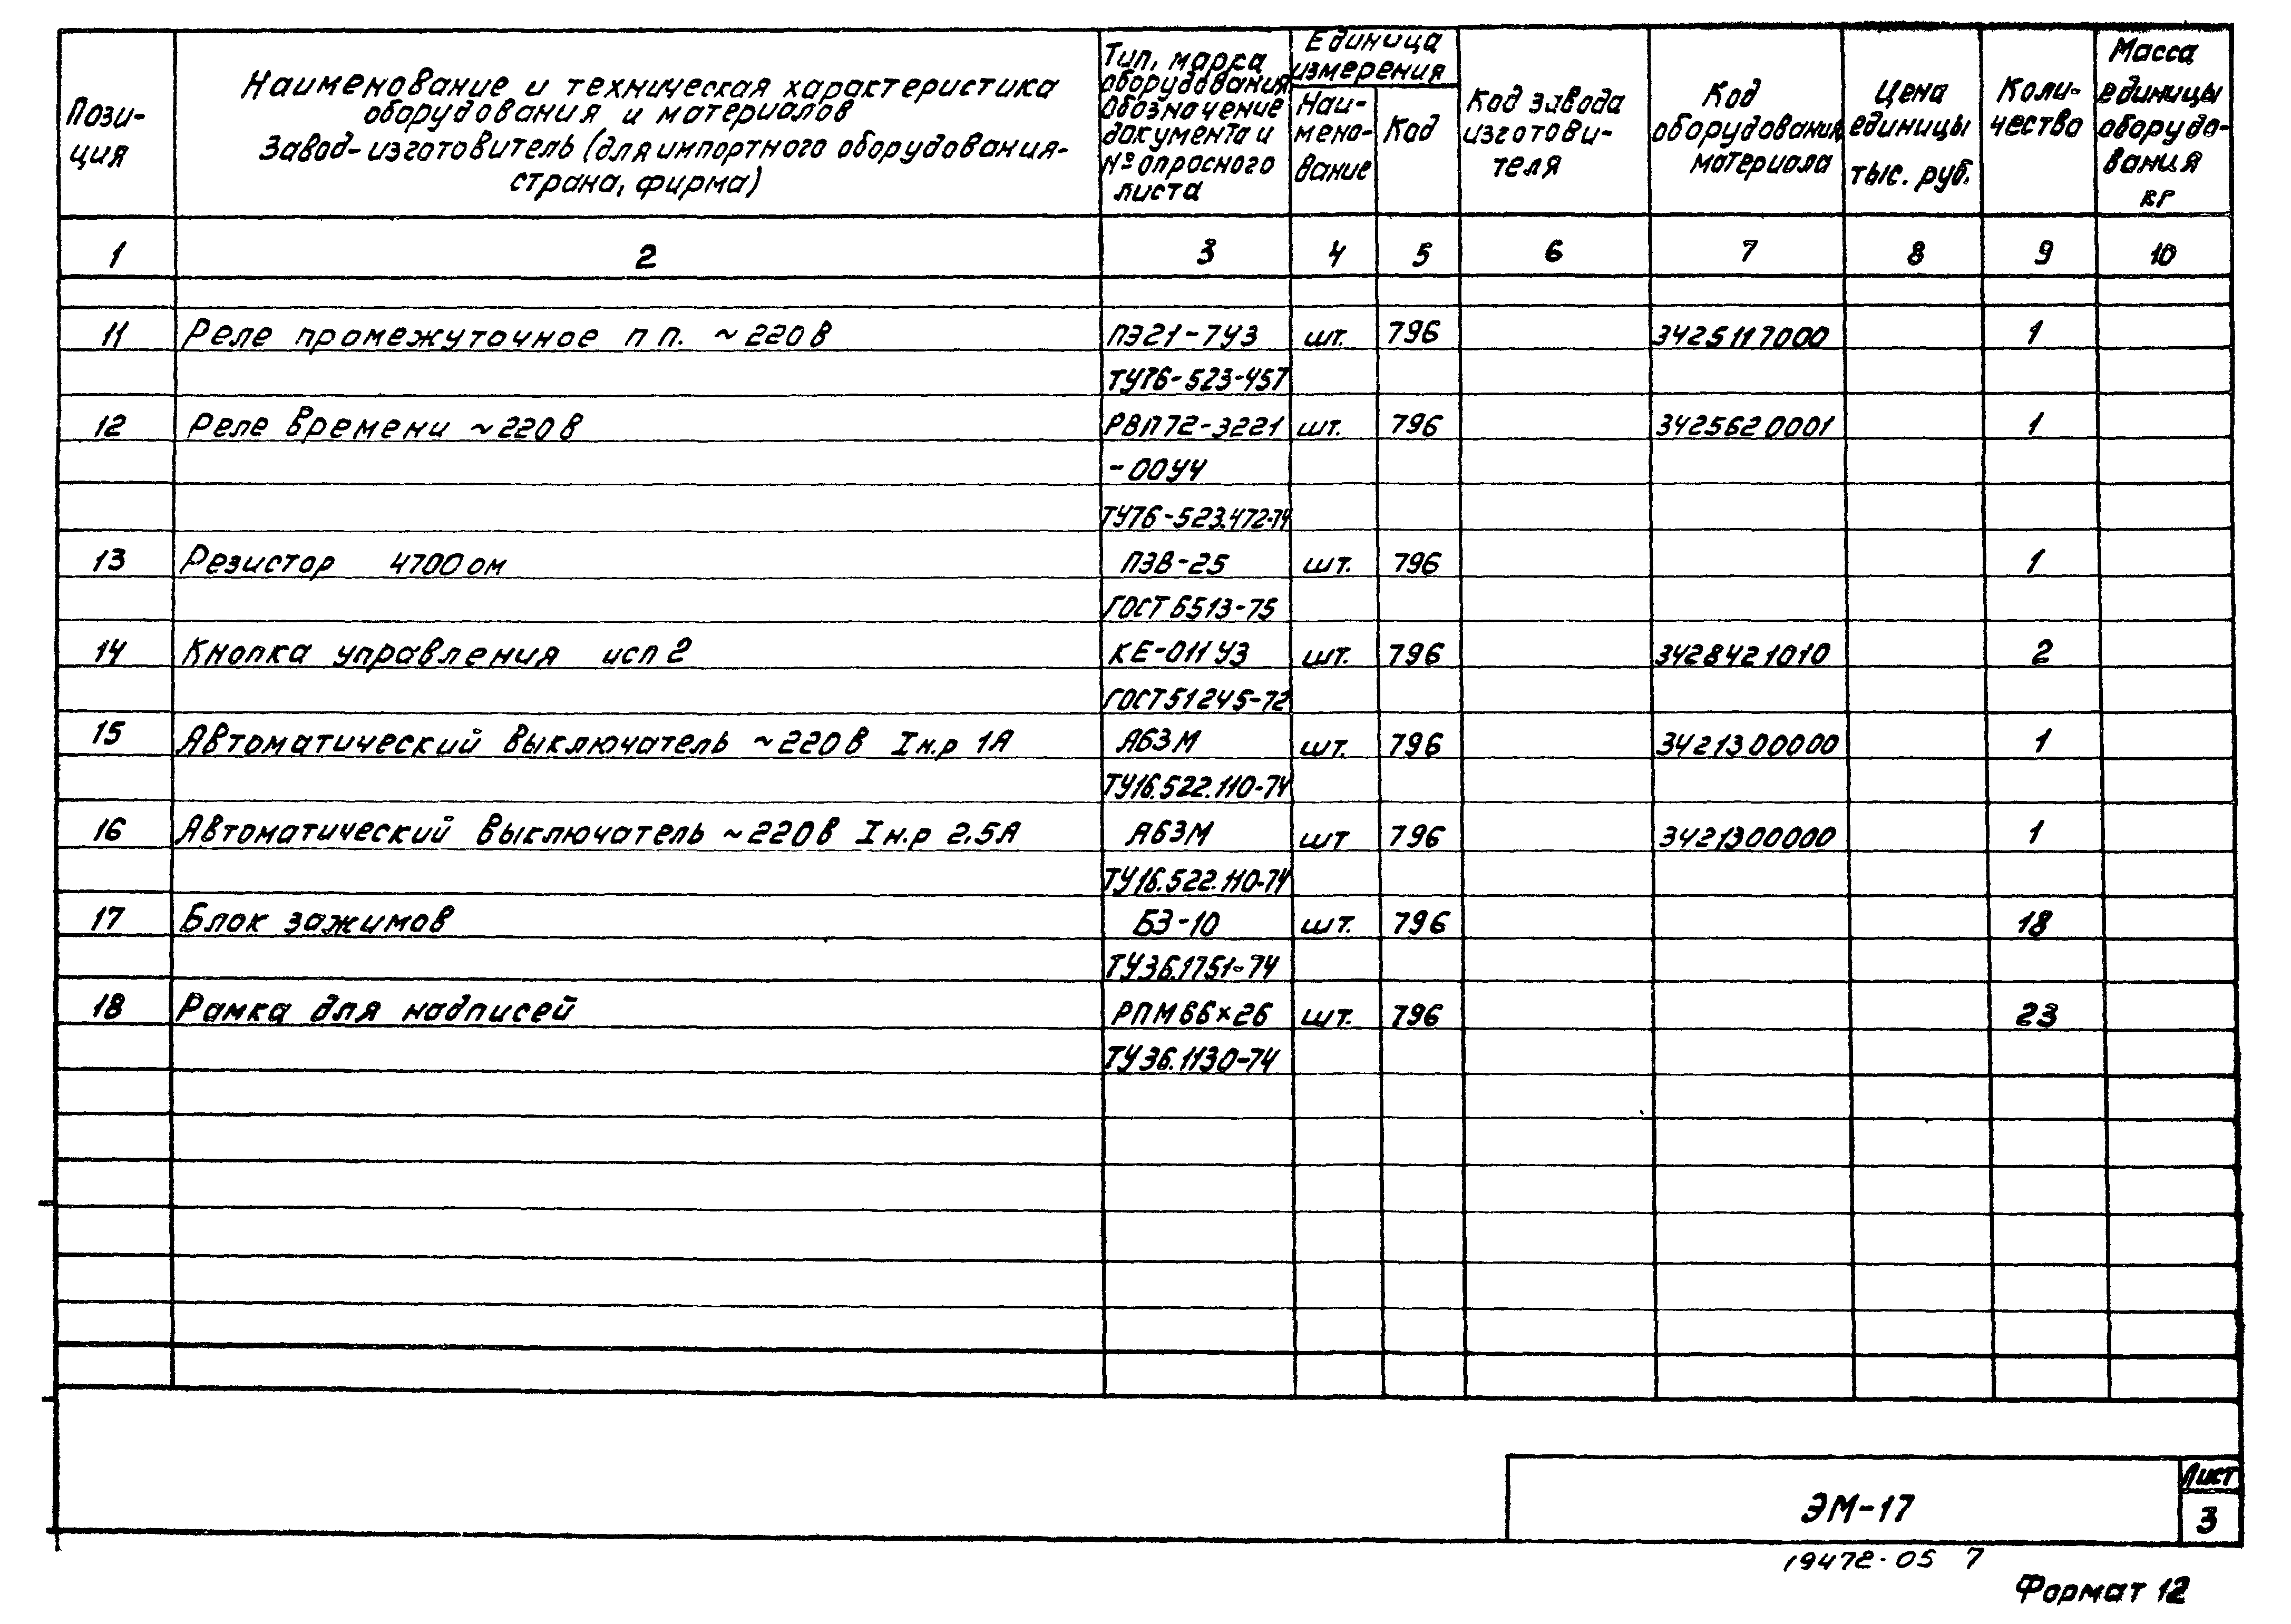 Пози-
ция
Наименование и техническая характеристика
оборудования и материалов
Завод-изготовитель (для импортного оборудования-
страна, фирма)
Тип, марка
оборудования
Обозначение
документа и
№ опросного
листа
Единица
измерения
Наи-
мено-
вание
Код
Код завода
изготови-
теля
Код
оборудования,
материала
Цена
единицы
тыс. руб.
Коли-
чество
Масса
единицы
оборудо-
вания
кг
1 2 3 4 5 6 7 8 9 10
11 Реле промежуточное п п. ~220в ПЭ21-7У3 шт. 796 3425117000 1
ТУ76-523-457
12 Реле времени ~220в РВП72-3221 шт. 796 3425620001 1
-00У4
ТУ76-523.472-74
13 Резистор 4700 ом ПЭВ-25 шт. 796 1
ГОСТ 6513-75
14 Кнопка управления исп 2 КЕ-011 У3 шт. 796 3428421010 2
ГОСТ51245-72
15 Автоматический выключатель ~220в Iн.р 1А А63М шт. 796 3421300000 1
ТУ16.522.110-74
16 Автоматический выключатель ~220в Iн.р 2,5А А63М шт 796 3421300000 1
ТУ16.522.110-74
17 Блок зажимов БЗ-10 шт. 796 18
ТУ36.1751-74
18 Рамка для надписей РПМ66×26 шт. 796 23
ТУ36.1130-74
ЭМ-17
Лист
3
19472-05 7
Формат 12